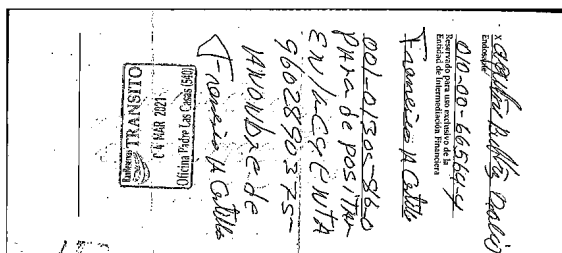 X
Endosante
010-00-66564-4
Reservado para uso exclusivo de la
Entidad de Intermediación Financiera
Francisco A Castillo
001-01305-86-0
PARA depositAR
EN LA CUENTA
9602890375
A NOMbre de
Francisco A Castillo
Banreservas TRANSITO
04 MAR 2021
Oficina Padre Las Casas (540)